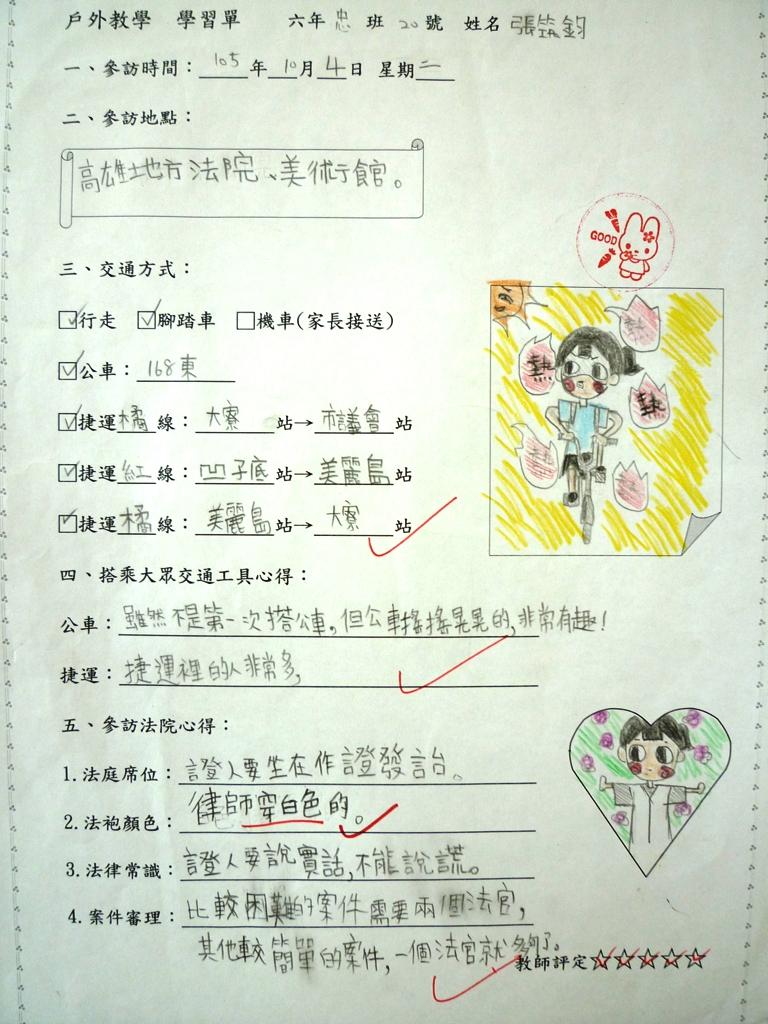 戶外教學 學習單 六年忠班20號 姓名張筑鈞
一、參訪時間：105年10月4日 星期二
二、參訪地點：
高雄地方法院、美術館。
GOOD
三、交通方式：
行走 腳踏車 機車(家長接送)
公車：168東
捷運橘線：大寮站→市議會站
捷運紅線：凹子底站→美麗島站
捷運橘線：美麗島站→大寮站
熱
熱
熱
四、搭乘大眾交通工具心得：
公車：雖然不是第一次搭公車，但公車搖搖晃晃的，非常有趣！
捷運：捷運裡的人非常多，
五、參訪法院心得：
1.法庭席位：證人要坐在作證發言台。
2.法袍顏色：律師穿白色的。
3.法律常識：證人要說實話，不能說謊。
4.案件審理：比較困難的案件需要兩個法官，
其他較簡單的案件，一個法官就夠了。
教師評定☆☆☆☆☆